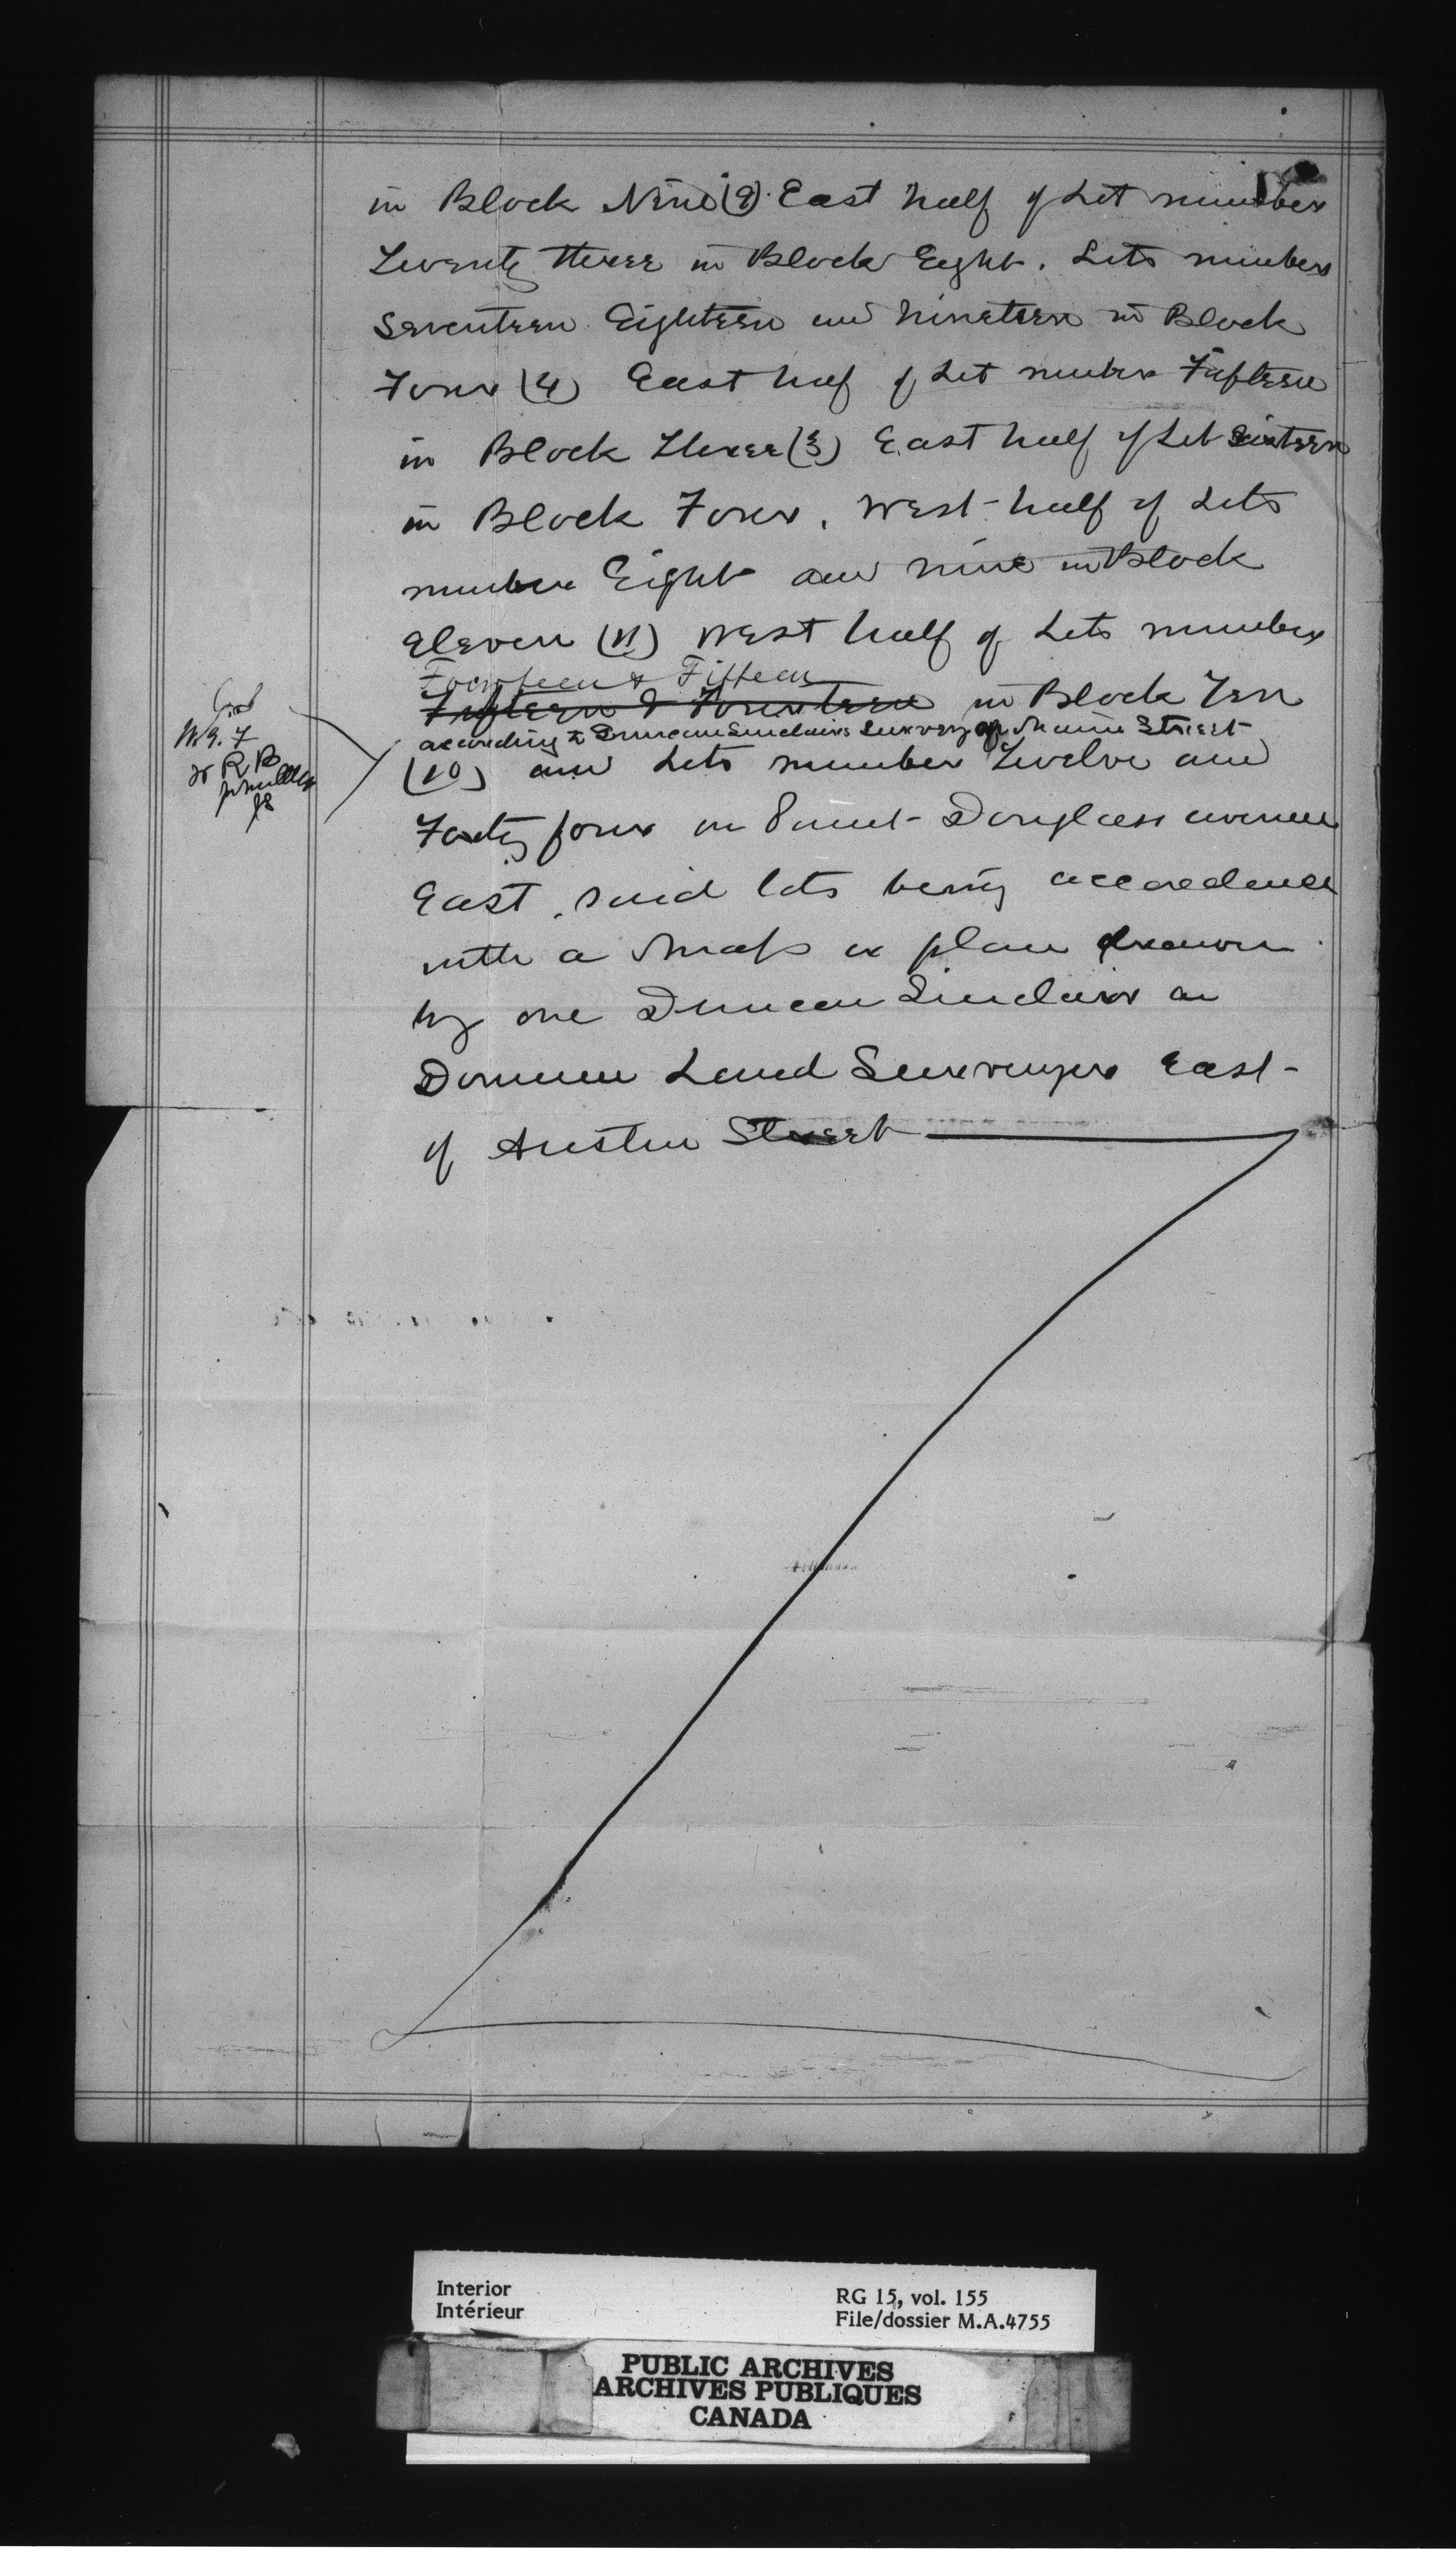 in Block Nine (9) East half of Lot number
Twenty three in Block Eight. Lots number
Seventeen Eighteen and Nineteen in Block
Four (4) East half of Lot number Fifteen
in Block Three (3) East half of Lot Sixteen
in Block Four, West half of Lots
number Eight and nine in Block
Eleven (11) West half of Lots number
Fourteen & Fifteen
Fifteen & Fourteen in Block Ten
according to Duncan Sinclairs Survey of Maine Street
(10) and Lots number Twelve and
Forty four on Point Douglass avenue
East, said lots being accordance
with a Map or plan drawn
by one Duncan Sinclair a
Dominion Land Surveyor East
of Austin Street
R B
Interior
Intérieur
RG 15, vol. 155
File/dossier M.A.4755
PUBLIC ARCHIVES
ARCHIVES PUBLIQUES
CANADA